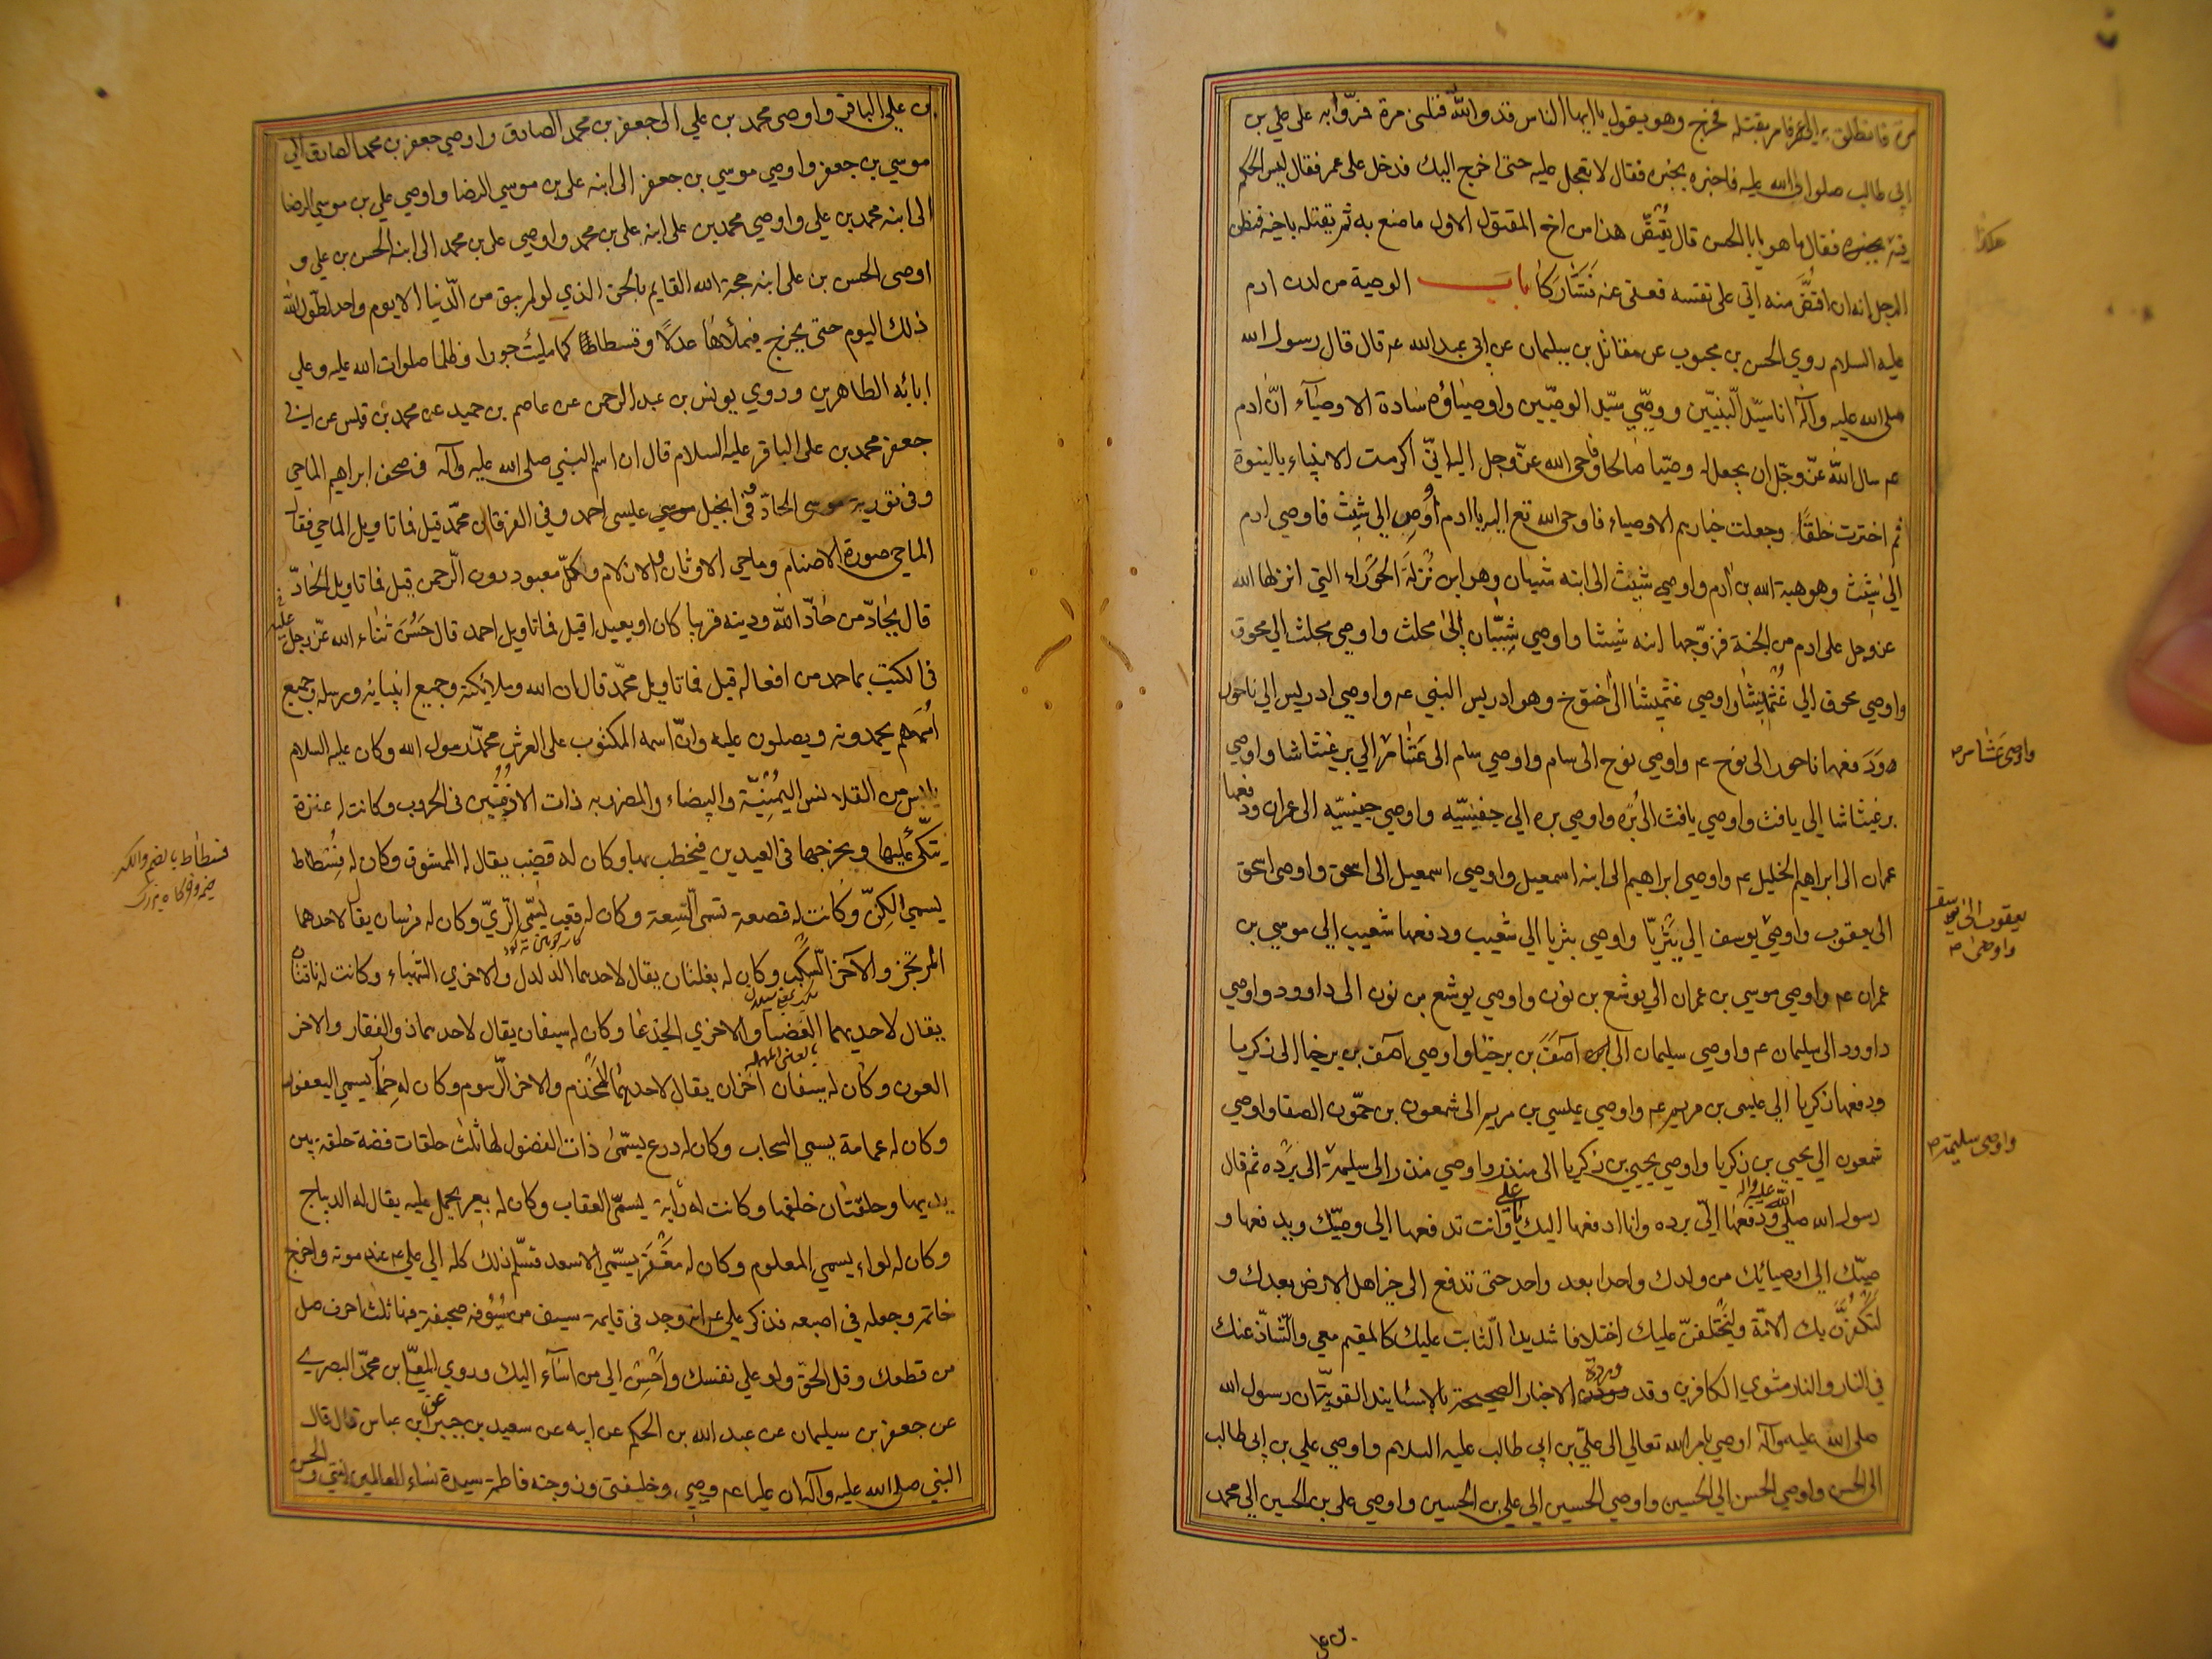 مرة فانطلق به الى عمر فامر بقتله فخرج وهو يقول يا ايها الناس قد والله قتلنى مرة فمروا به على علي بن
ابي طالب صلوات الله عليه فاخبره بخبره فقال لا تعجل عليه حتى اخرج اليك فدخل على عمر فقال ليس الحكم
فيه فقال ما هو يا ابا الحسن قال يقتص هذا من اخ المقتول الاول ما صنع به ثم يقتله باخيه فنظر
الرجل انه ان اقتص منه اتى على نفسه فعفى عنه وتتاركا باب الوصية من لدن ادم
عليه السلام روي الحسن بن محبوب عن مقاتل بن سليمان عن ابي عبد الله ع قال قال رسول الله
صلى الله عليه وآله انا سيّد النبيّين ووصيّي سيّد الوصيّين واوصياؤه سادة الاوصيآء انّ ادم
ع سال الله عزّ وجلّ ان يجعل له وصيّا صالحا فاوحى الله عزّ وجل اليه انّي اكرمت الانبياء بالنبوة
ثم اخترت خلقًا وجعلت خيارهم الاوصياء فاوحى الله تع اليه يا ادم أوصِ الي شيث فاوصي ادم
إلى شيث وهو هبة الله بن آدم واوصي شيث الى ابنه شبان وهو ابن نُزلَة الحَورَاء التي انزلها الله
عز وجل على ادم من الجنة فزوّجها ابنه شيثا واوصي شِبّان إلى محلث واوصي محلث الي محوق
واوصي محوق الي غثميشا واوصي غثميشا الى اخنوخ وهو ادريس النبي ع واوصي ادريس الي ناحور
ودفعها ناحور الى نوح ع واوصي نوح الى سام واوصي سام الى عَثامر الي برغيثاشا واوصي
واوصى عثامر صح
برغيثاشا الي يافث واوصي يافث الى بُرّه واوصي بره الي جفيسيّه واوصي جفيسيّه الى عمران ودفعها
عمران الى ابراهيم الخليل ع واوصي ابراهيم الى ابنه اسمعيل واوصي اسمعيل الى اسحق واوصى اسحق
الى يعقوب واوصي يوسف الي بثريّا واوصي بثريا الي شعيب ودفعها شعيب إلي موسي بن
يعقوب الى يوسف
واوصى صح
عمران ع واوصي موسي بن عمران الي يوشع بن نون واوصي يوشع بن نون الى داوود واوصي
داوود الى سليمان ع واوصي سليمان الى آصف بن برخيا واوصي آصف بن برخيا الى زكريا
ودفعها زكريا الي عيسى بن مريم ع واوصي عيسي بن مريم الى شمعون بن حمّون الصفا واوصي
شمعون الي يحيي بن زكريا واوصي يحيي بن زكريا الى منذر واوصي منذر الى سليمة الى برده ثم قال
واوصى سليمة صح
رسول الله صلى الله عليه واله ودفعها إليّ برده وانا ادفعها اليك يا علي وانت تدفعها الي وصيّك ويدفعها و
صيّك الي اوصيائك من ولدك واحدا بعد واحد حتى تدفع الى خير اهل الارض بعدك و
لتكفرنّ بك الامّة ولتختلفنّ عليك اختلافا شديدا الثابت عليك كالمقيم معي والشّاذّ عنك
في النار والنار مثوي الكافرين وقد وردت الاخبار الصحيحة بالاسانيد القويّة ان رسول الله
صلى الله عليه وآله اوصي بامر الله تعالي الى عليّ بن ابي طالب عليه السلام واوصي علي بن ابي طالب
الى الحسن واوصي الحسن الي الحسين واوصي الحسين الي علي بن الحسين واوصي علي بن الحسين الي محمد
بن علي الباقر واوصى محمد بن علي الى جعفر بن محمد الصادق واوصي جعفر بن محمد الصادق الي
موسي بن جعفر واوصي موسي بن جعفر الى ابنه علي بن موسي الرضا واوصي علي بن موسي الرضا
الى ابنه محمد بن علي واوصي محمد بن على ابنه علي بن محمد واوصي علي بن محمد الى ابنه الحسن بن علي و
اوصى الحسن بن على ابنه حجة الله القايم بالحق الذي لو لم يبق من الدّنيا الا يوم واحد لطوّل الله
ذلك اليوم حتى يخرج فيملأها عدلًا وقسطا كما مليت جورا وظلما صلوات الله عليه وعلي
ابائه الطاهرين وروي يونس بن عبد الرحمن عن عاصم بن حميد عن محمد بن قيس عن ابي
جعفر محمد بن على الباقر عليه السلام قال ان اسم النبي صلى الله عليه وآله فى صحف ابراهيم الماحي
وفى تورية موسى الحادّ وفى انجيل عيسى احمد وفي الفرقان محمّد قيل فما تاويل الماحي فقال
الماحي صورة الاصنام وماحي الاوثان والازلام وكلّ معبود دون الرّحمن قيل فما تاويل الحادّ
قال يحادّ من حادّ الله ودينه قريبا كان او بعيدا قيل فما تاويل احمد قال حَسُنَ ثناء الله عزّ وجل عليه
فى الكتب بما حمد من افعاله قيل فما تاويل محمّد قال ان الله وملائكته وجميع انبيائه ورسله وجميع
أممهم يحمدونه ويصلون عليه وانّ اسمه المكتوب على العرش محمّد رسول الله وكان عليه السلام
يلبس من القلانس اليمُنِيّة والبيضاء والمضربه ذات الاذنين فى الحروب وكانت له عنزة
يتكّئ عليها ويخرجها فى العيدين فيخطب بها وكان له قضيب يقال له الممشوق وكان له فِسْطاط
يسمي الكِنّ وكانت له قصعة تسمى السّعة وكان له قعب يسمّى الرّيّ وكان له فرسان يقال لاحدهما
المرتجز والآخر السّكب وكان له بغلتان يقال لاحدهما الدلدل والاخري الشهباء وكانت له ناقتان
يقال لاحديهما العضبا والاخري الجذعا وكان له سيفان يقال لاحدهما ذو الفقار والاخر
العون وكان له سيفان اخران يقال لاحدهما المخذم والاخر الرّسوم وكان له حمار يسمي اليعفور
وكان له عمامة يسمي السحاب وكان له درع يسمّى ذات الفضول لها ثلث حلقات فضة حلقة بين
يديها وحلقتان خلفها وكانت له راية يسمّى العقاب وكان له بعير يحمل عليه يقال له الديباج
وكان له لواء يسمي المعلوم وكان له مغفر يسمّي الاسعد فسلّم ذلك كله الي علي ع عند موته واخرج
خاتمه وجعله في اصبعه فذكر علي ع انه وجد فى قايمة سيف من سيوفه صحيفة فيها ثلث احرف صل
من قطعك وقل الحقّ ولو علي نفسك وأحْسِن الي من اساء اليك وروي المعلّى بن محمّد البصري
عن جعفر بن سليمان عن عبد الله بن الحكم عن ابيه عن سعيد بن جبير عن ابن عباس قال قال
النبي صلى الله عليه وآله ان عليا ع وصيي وخليفتى وزوجته فاطمة سيدة نساء العالمين ابنتي والحسن
فسطاط بالضم والكسر